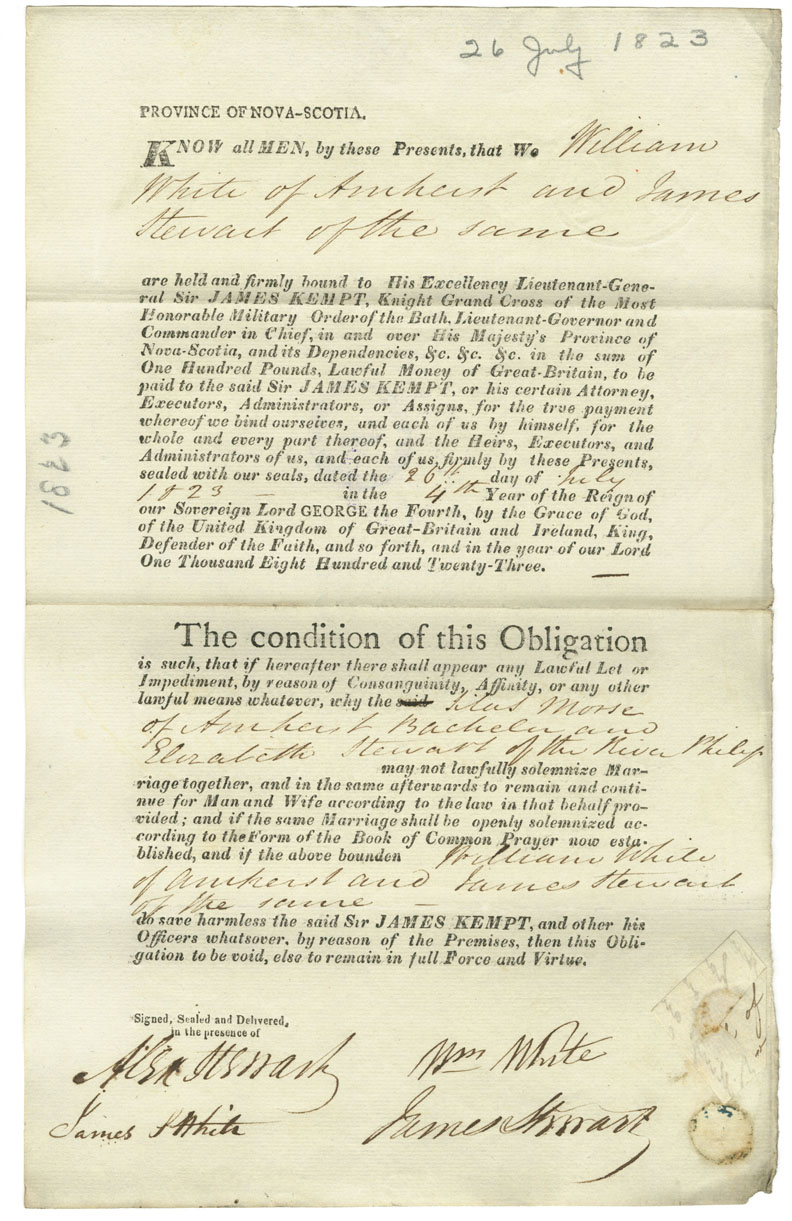 26 July 1823
PROVINCE OF NOVA-SCOTIA.
KNOW all MEN, by these Presents, that We William
White of Amherst and James
Stewart of the same
are held and firmly bound to His Excellency Lieutenant-Gene-
ral Sir JAMES KEMPT, Knight Grand Cross of the Most
Honorable Military Order of the Bath, Lieutenant-Governor and
Commander in Chief, in and over His Majesty's Province of
Nova-Scotia, and its Dependencies, &c. &c. &c. in the sum of
One Hundred Pounds, Lawful Money of Great-Britain, to be
paid to the said Sir JAMES KEMPT, or his certain Attorney,
Executors, Administrators, or Assigns, for the true payment
whereof we bind ourselves, and each of us by himself, for the
whole and every part thereof, and the Heirs, Executors, and
Administrators of us, and each of us, firmly by these Presents,
sealed with our seals, dated the 26th day of July
1823 — in the 4th Year of the Reign of
our Sovereign Lord GEORGE the Fourth, by the Grace of God,
of the United Kingdom of Great-Britain and Ireland, King,
Defender of the Faith, and so forth, and in the year of our Lord
One Thousand Eight Hundred and Twenty-Three. —
1823
The condition of this Obligation
is such, that if hereafter there shall appear any Lawful Let or
Impediment, by reason of Consanguinity, Affinity, or any other
lawful means whatever, why the said Silas Morse
of Amherst Bachelor and
Elizabeth Stewart of the River Philip
may not lawfully solemnize Mar-
riage together, and in the same afterwards to remain and conti-
nue for Man and Wife according to the law in that behalf pro-
vided; and if the same Marriage shall be openly solemnized ac-
cording to the Form of the Book of Common Prayer now esta-
blished, and if the above bounden William White
of Amherst and James Stewart
of the same —
do save harmless the said Sir JAMES KEMPT, and other his
Officers whatsover, by reason of the Premises, then this Obli-
gation to be void, else to remain in full Force and Virtue.
Signed, Sealed and Delivered,
in the presence of
Alex Stewart Wm White
James S White James Stewart